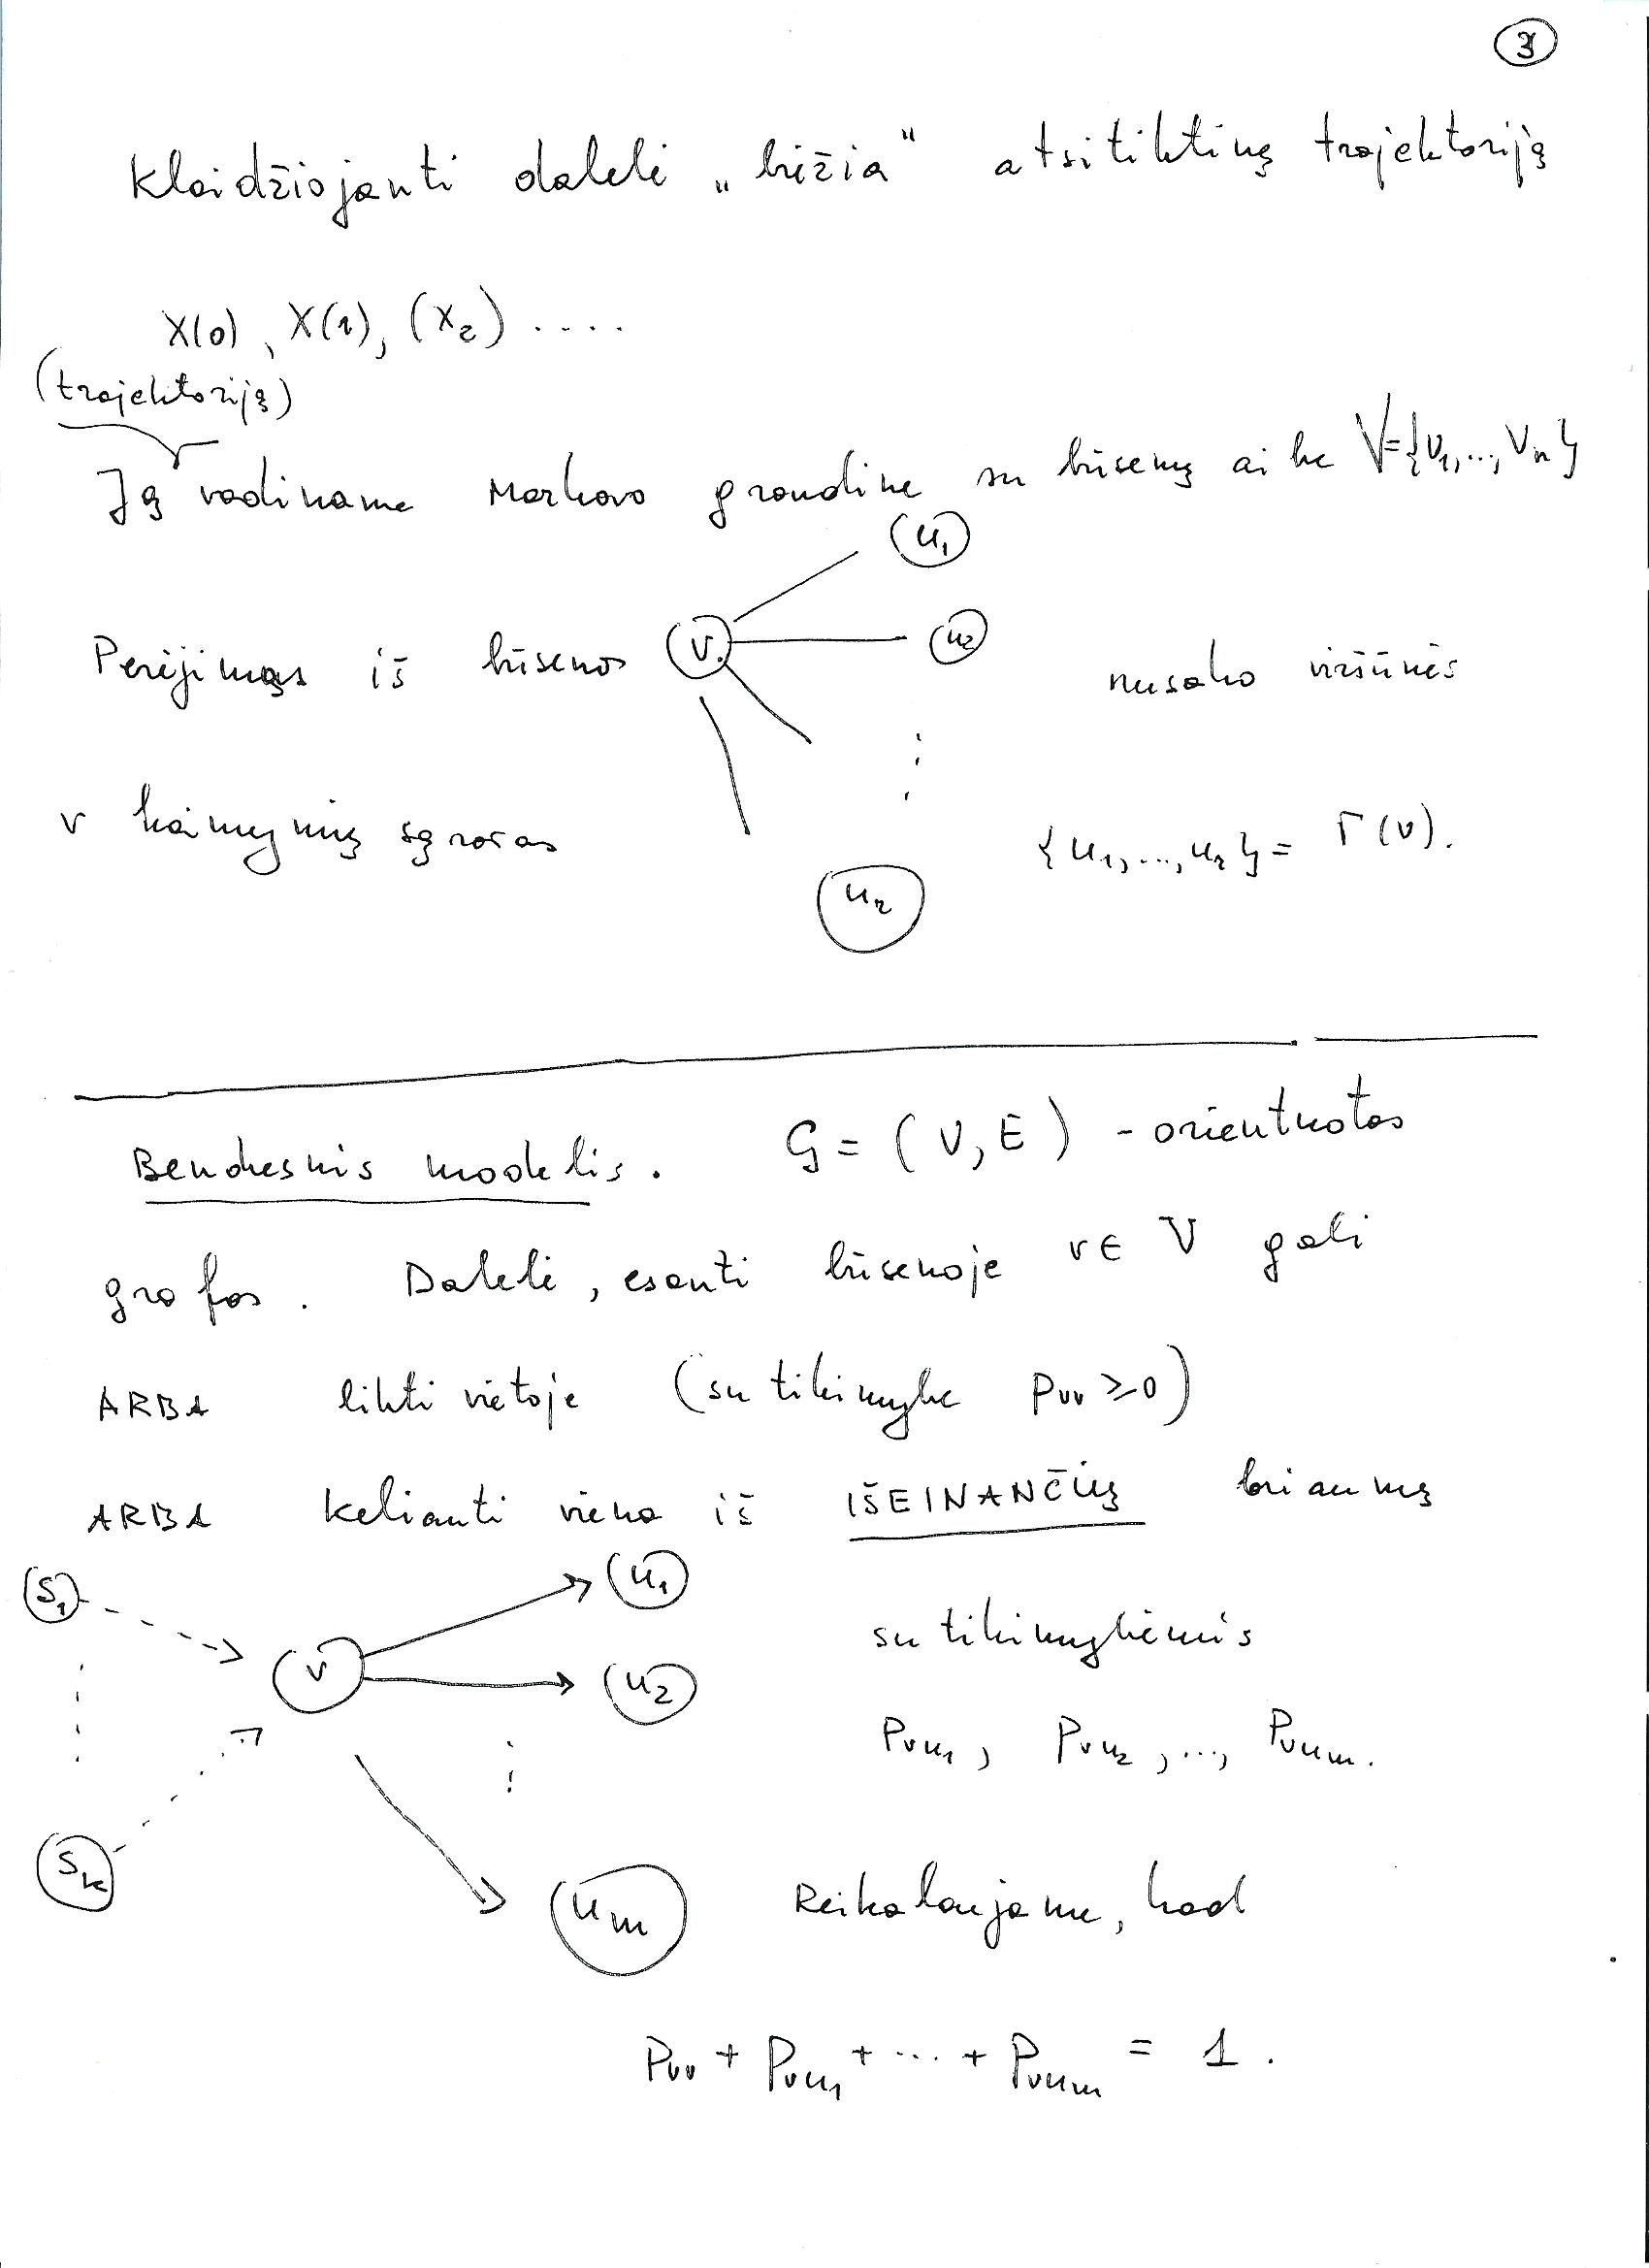 3
Klaidžiojanti dalelė „brėžia“ atsitiktinę trajektoriją
X(0), X(1), (X₂) ....
(trajektoriją)
Ją vadiname Markovo grandine su būsenų aibe V={v₁,...,vₙ}
u₁
Perėjimas iš būsenos v u₂ nusako viršūnės
v kaimynių sąrašas {u₁,...,uᵣ} = Γ(v).
uᵣ
Bendresnis modelis. G = (V, E) - orientuotas
grafas. Dalelė, esanti būsenoje v ∈ V gali
ARBA likti vietoje (su tikimybe pᵥᵥ ≥ 0)
ARBA keliauti viena iš IŠEINANČIŲ briaunų
s₁ u₁
su tikimybėmis
v u₂
pᵥᵤ₁, pᵥᵤ₂, ..., pᵥᵤₘ.
sₖ uₘ Reikalaujame, kad
pᵥᵥ + pᵥᵤ₁ + ... + pᵥᵤₘ = 1.